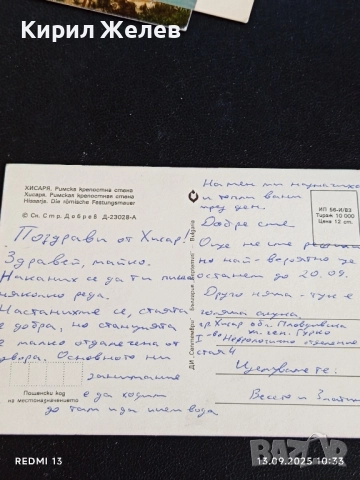 Кирил Желев
ХИСАРЯ. Римска крепостна стена
Хисаря. Римская крепостная стена
Hissarja. Die römische Festungsmauer
© Сн. Стр. Добрев Д-23028-А
Поздрави от Хисар!
Здравей, майко.
Наканих се да ти пиша
няколко реда.
Настанихте се, стаята
е добра, но станцията
е малко отдалечена от
двора. Основното ни
занимание
е да ходим
до там и да пием вода
Пощенски код
на местоназначението
ДИ „Септември“ България
Bulgaria
На мен ми назначиха
и топли вани
през ден.
Добре сме.
Още не сте
но най-вероятно ще
останем до 20.09.
Друго няма - тук е
голяма скука.
гр. Хисар обл. Пловдивска
ул. ген. Гурко
I-во Неврологично отделение
стая 4
Целуваме те:
Весето и Златка
ИП 56-И/83
Тираж 10 000
Цена 12 ст.
REDMI 13
13.09.2025 10:33
BAZAR